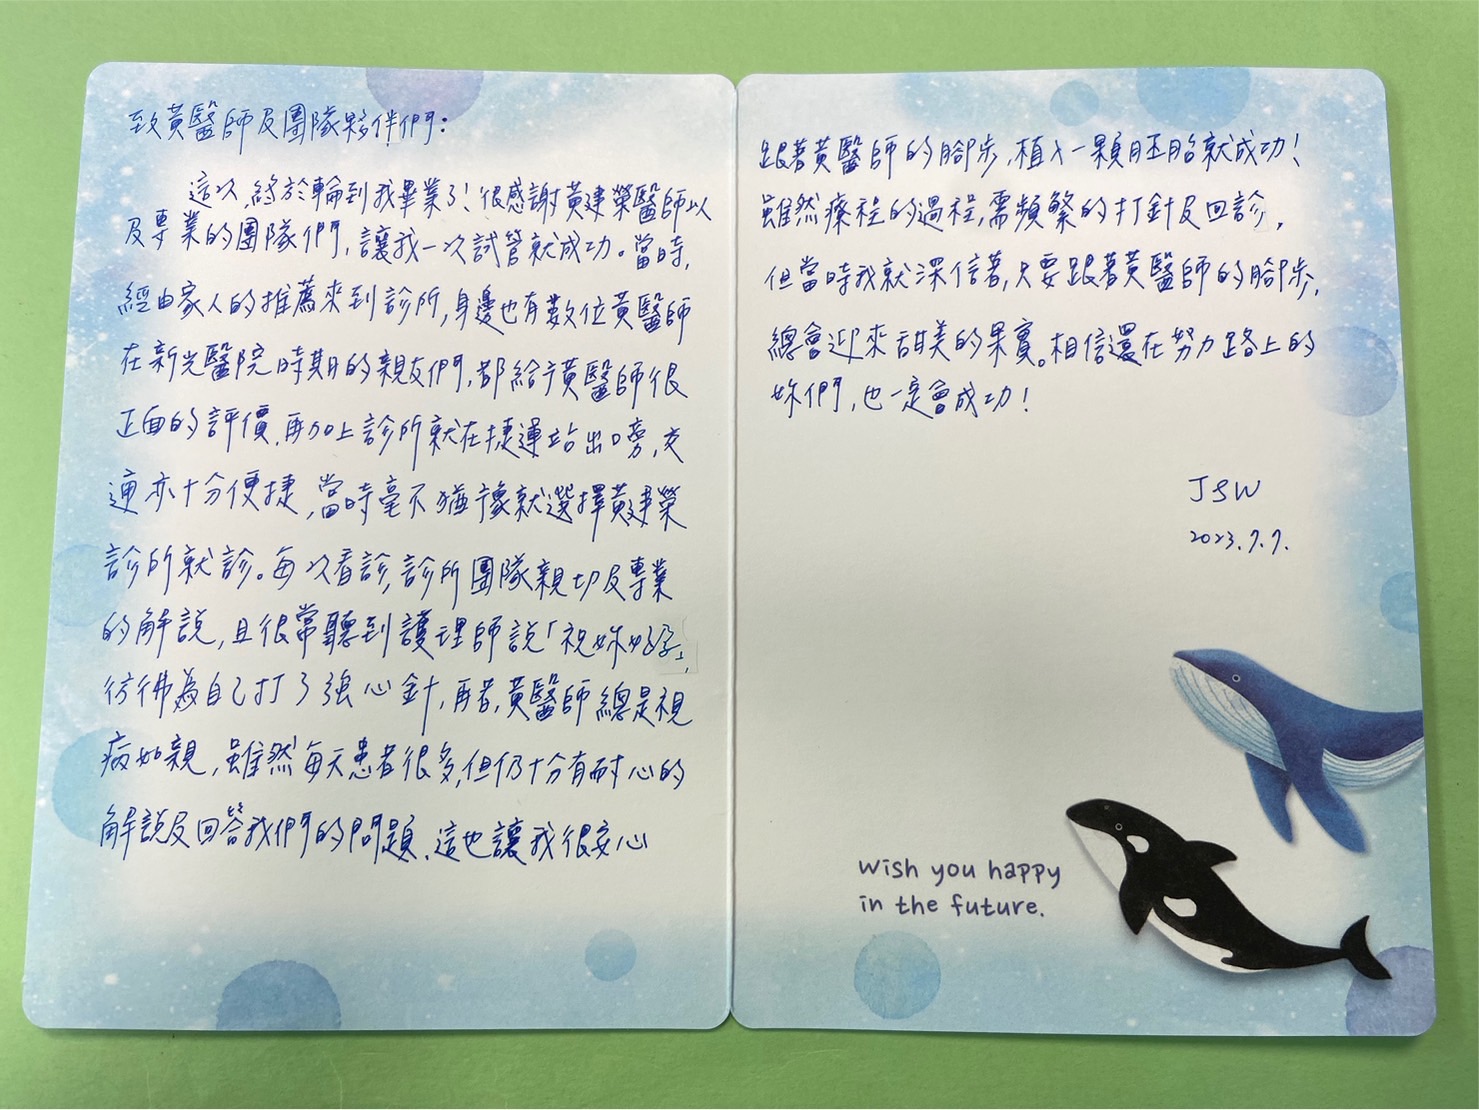 致黃醫師及團隊夥伴們：
這次,終於輪到我畢業了！很感謝黃建榮醫師以
及專業的團隊們,讓我一次試管就成功。當時,
經由家人的推薦來到診所,身邊也有數位黃醫師
在新光醫院時期的親友們,都給予黃醫師很
正面的評價,再加上診所就在捷運站出口旁,交
通亦十分便捷,當時毫不猶豫就選擇黃建榮
診所就診。每次看診,診所團隊親切及專業
的解說,且很常聽到護理師說「祝妳好孕」,
彷彿為自己打了強心針,再者,黃醫師總是視
病如親,雖然每天患者很多,但仍十分有耐心的
解說及回答我們的問題,這也讓我很安心
跟著黃醫師的腳步,植入一顆胚胎就成功！
雖然療程的過程,需頻繁的打針及回診,
但當時我就深信著,只要跟著黃醫師的腳步,
總會迎來甜美的果實。相信還在努力路上的
妳們,也一定會成功！
JSW
2023.7.7.
Wish you happy
in the future.